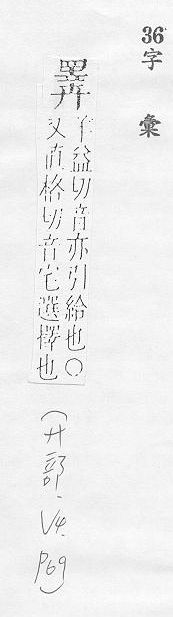 36 字彙
羊益切音亦引給也○
又直格切音宅選擇也
(廾部.V4.P69)